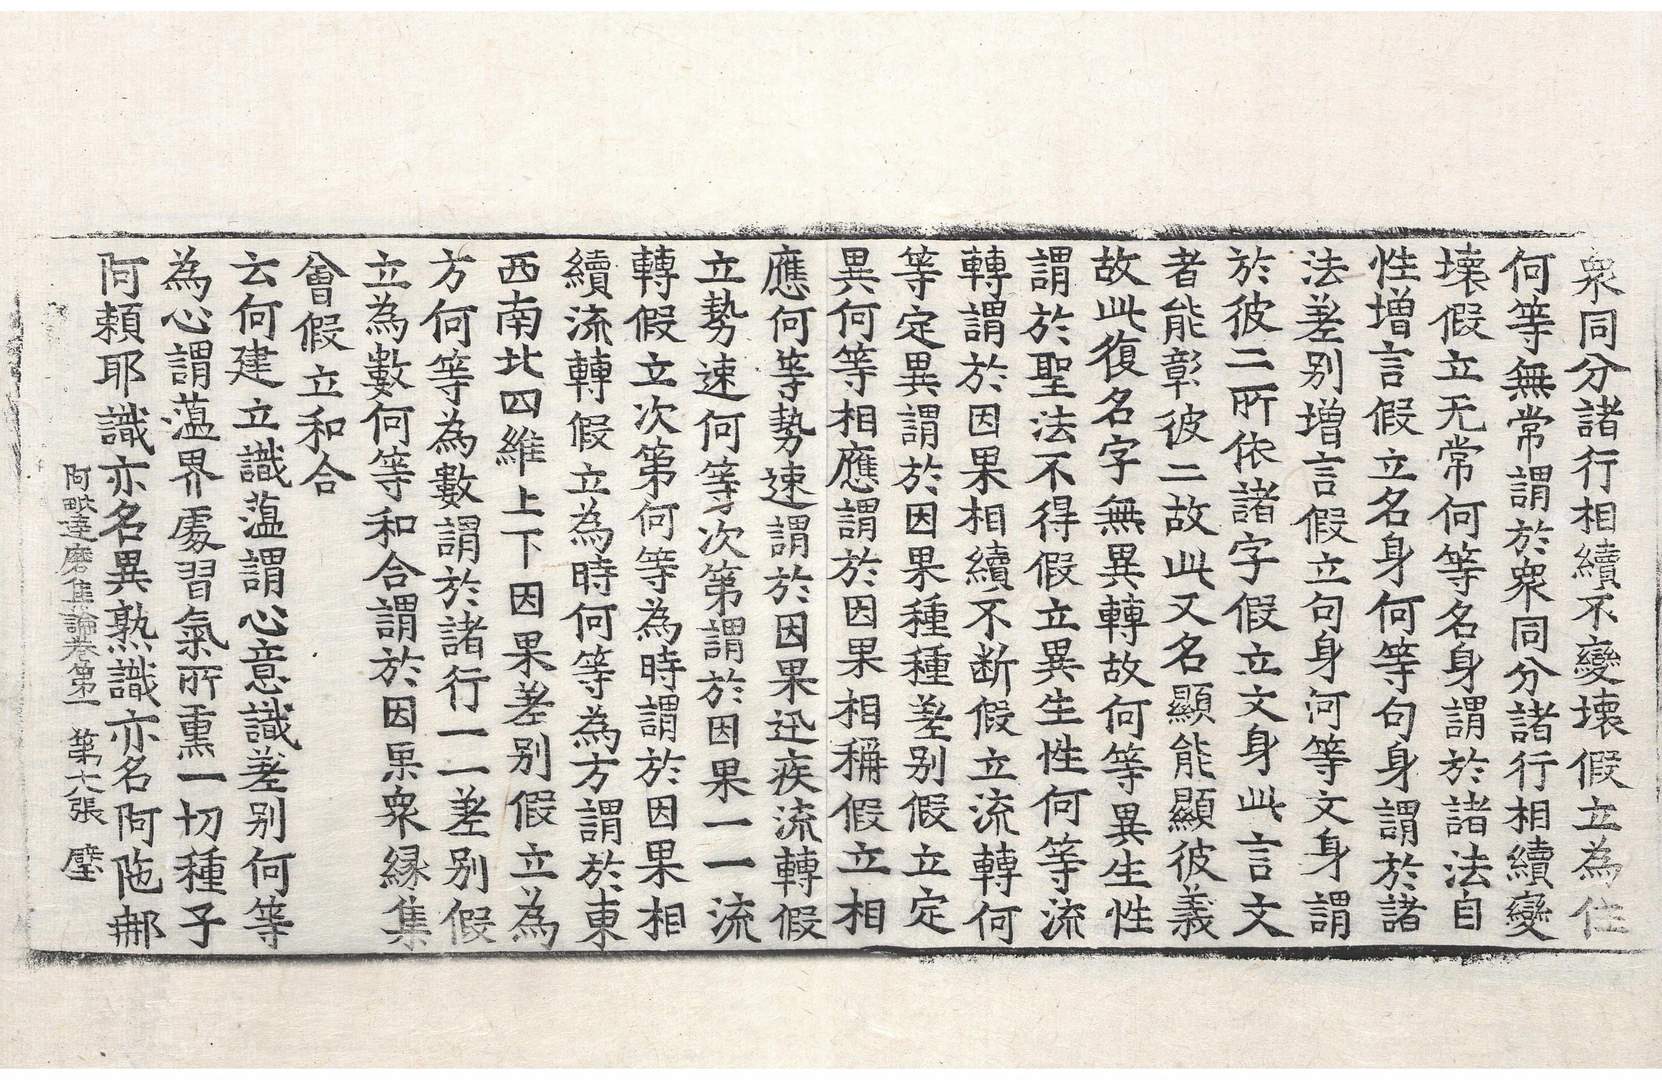 衆同分諸行相續不變壞假立為住
何等無常謂於衆同分諸行相續變
壞假立无常何等名身謂於諸法自
性增言假立名身何等句身謂於諸
法差别增言假立句身何等文身謂
於彼二所依諸字假立文身此言文
者能彰彼二故此又名顯能顯彼義
故此復名字無異轉故何等異生性
謂於聖法不得假立異生性何等流
轉謂於因果相續不断假立流轉何
等定異謂於因果種種差别假立定
異何等相應謂於因果相稱假立相
應何等勢速謂於因果迅疾流轉假
立勢速何等次第謂於因果一一流
轉假立次第何等為時謂於因果相
續流轉假立為時何等為方謂於東
西南北四維上下因果差别假立為
方何等為數謂於諸行一一差别假
立為數何等和合謂於因果衆緣集
會假立和合
云何建立識藴謂心意識差别何等
為心謂藴界處習氣所熏一切種子
阿頼耶識亦名異熟識亦名阿陁那
阿毗達磨集論卷第一 第六張 璧